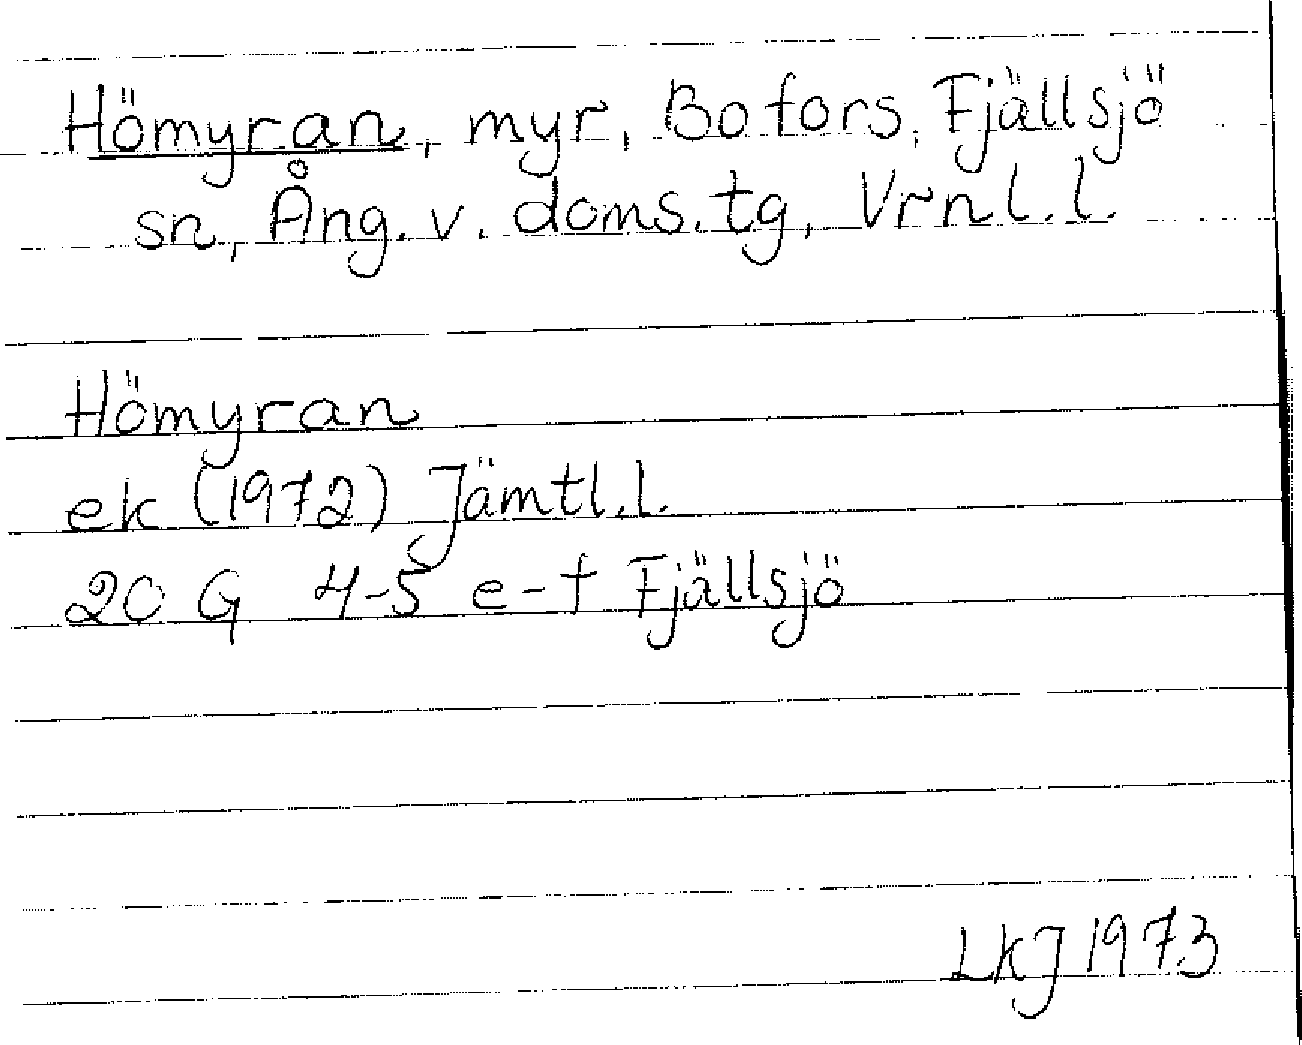 Hömyran, myr, Bofors, Fjällsjö
sn, Ång. v. doms. tg, Vrnl. l.
Hömyran
ek (1972) Jämtl. l.
20 G 4-5 e-f Fjällsjö
LKJ 1973